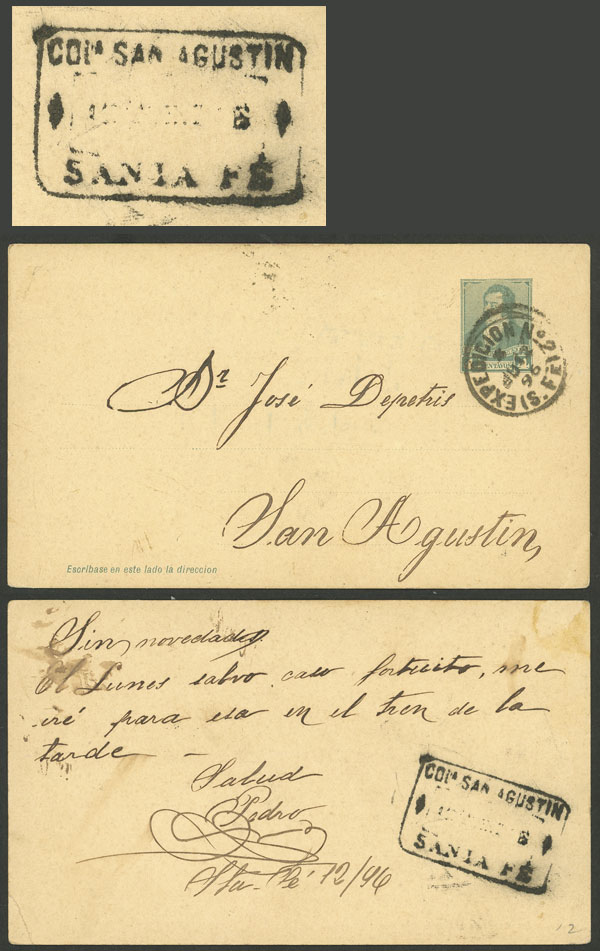 COLA SAN AGUSTIN
SANTA FÉ
EXPEDICION No 2 (S. FÉ)
96
CENTAVOS
Dr José Depetris
San Agustin,
Escribase en este lado la direccion
Sin novedad
El Lunes salvo caso fortuito, me
iré para esa en el tren de la
tarde —
Salud
Pedro
Sta. Fé 12/96
COLA SAN AGUSTIN
SANTA FÉ
12